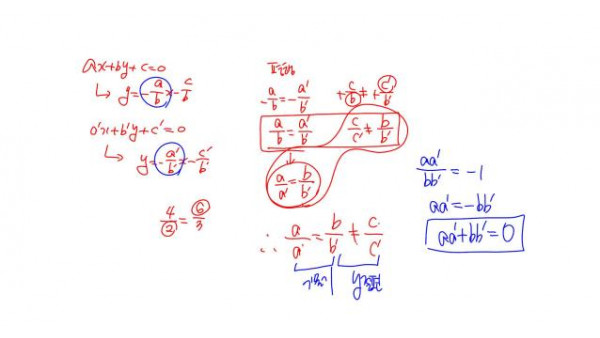 ax+by+c=0
↳ y=-a/b x-c/b
a'x+b'y+c'=0
↳ y=-a'/b' x-c'/b'
4/2=6/3
-a/b=-a'/b' +c/b≠+c'/b'
a/b=a'/b' c/c'≠b/b'
↓
a/a'=b/b'
∴ a/a'=b/b'≠c/c'
기울기 y절편
aa'/bb'=-1
aa'=-bb'
aa'+bb'=0